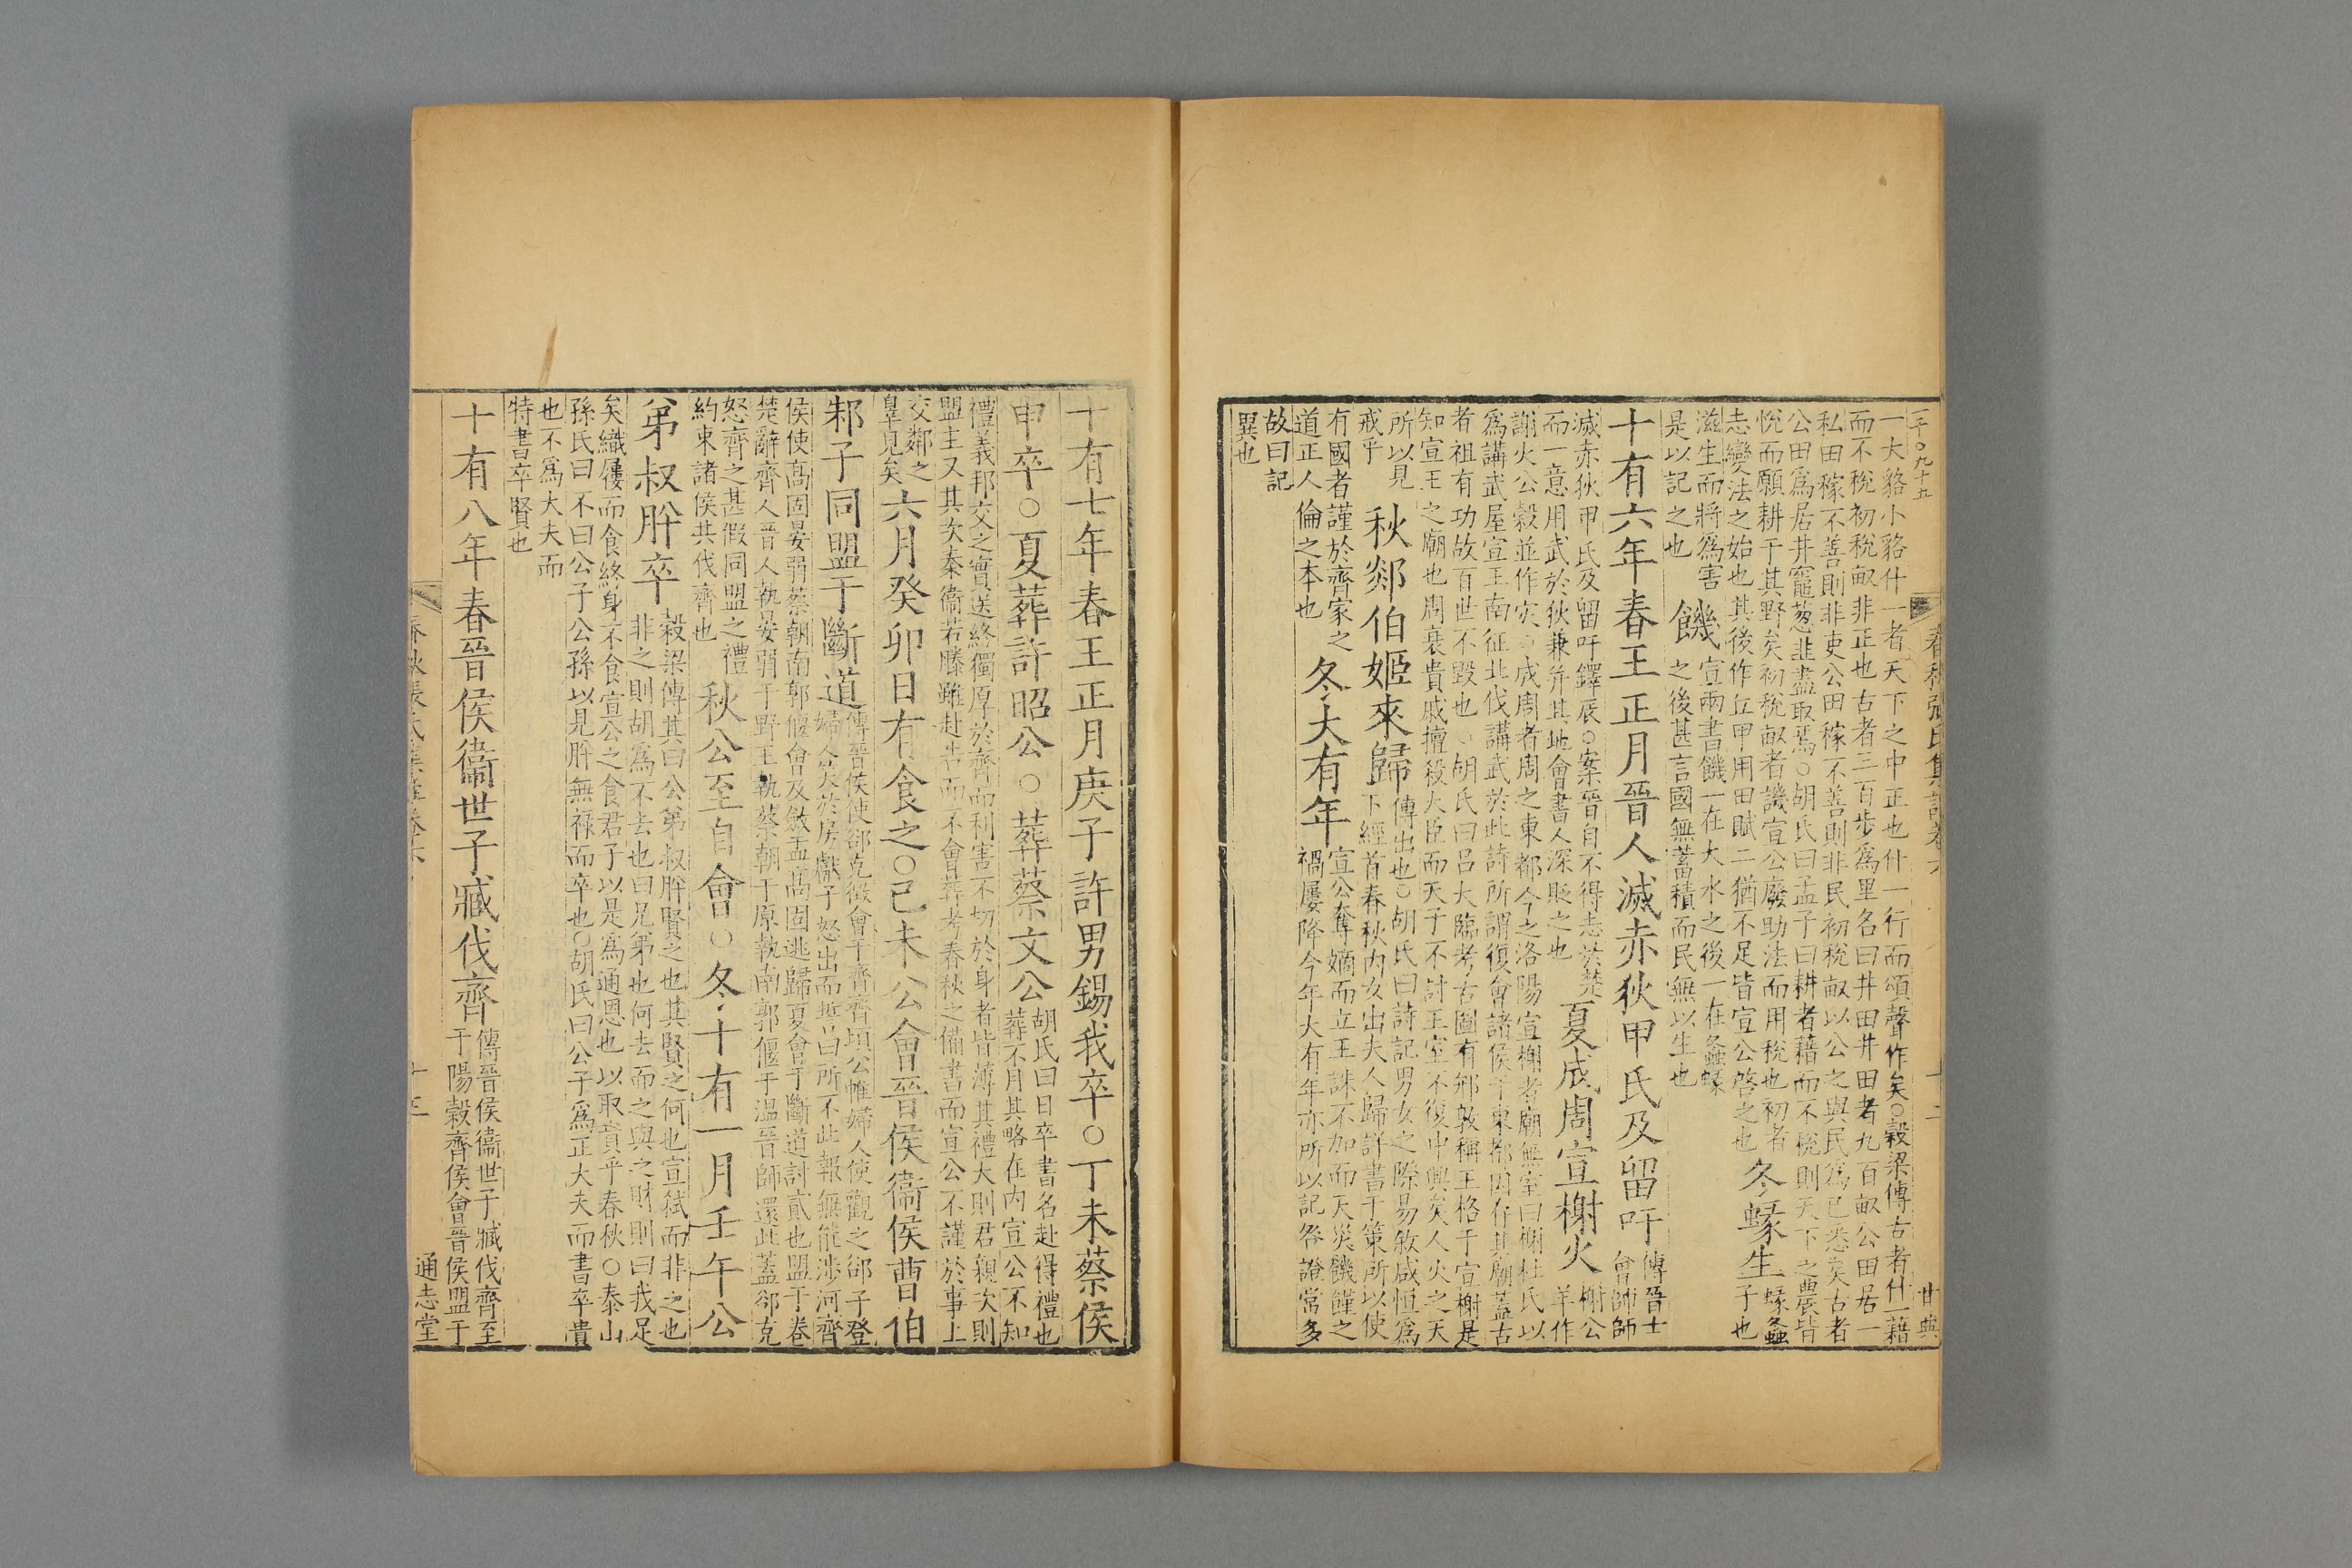 春秋張氏集註卷六
一大貉小貉什一者天下之中正也什一行而頌聲作矣○穀梁傳古者什一藉
而不稅初稅畝非正也古者三百步爲里名曰井田井田者九百畝公田居一
私田稼不善則非吏公田稼不善則非民初稅畝以公之與民爲已悉矣古者
公田爲居井竈葱韭盡取焉○胡氏曰孟子曰耕者藉而不稅則天下之農皆
悅而願耕于其野矣初稅畝者譏宣公廢助法而用稅也初者
志變法之始也其後作丘甲用田賦二猶不足皆宣公啓之也
冬蝝生
蝝螽
子也
滋生而將爲害
是以記之也
饑
宣兩書饑一在大水之後一在螽蝝
之後甚言國無蓄積而民無以生也
十有六年春王正月晉人滅赤狄甲氏及留吁
傳晉士
會帥師
滅赤狄甲氏及留吁鐸辰○案晉自不得志於楚
而一意用武於狄兼并其地會書人深貶之也
夏成周宣榭火
榭公
羊作
謝火公穀並作灾○成周者周之東都今之洛陽宣榭者廟無室曰榭杜氏以
爲講武屋宣王南征北伐講武於此詩所謂復會諸侯于東都因存其廟蓋古
者祖有功故百世不毀也○胡氏曰呂大臨考古圖有郉敦稱王格于宣榭是
知宣王之廟也周衰貴戚擅殺大臣而天子不討王室不復中興矣人火之天
所以見
戒乎
秋郯伯姬來歸
傳出也○胡氏曰詩記男女之際易敘咸恒爲
下經首春秋內女出夫人歸詳書于策所以使
有國者謹於齊家之
道正人倫之本也
冬大有年
宣公奪嫡而立王誅不加而天災饑饉之
禍屢降今年大有年亦所以記咎證常多
故曰記
異也
十有七年春王正月庚子許男錫我卒○丁未蔡侯
申卒○夏葬許昭公○葬蔡文公
胡氏曰日卒書名赴得禮也
葬不月其略在內宣公不知
禮義邦交之實送終獨厚於齊而利害不切於身者皆薄其禮大則君親次則
盟主又其次秦衞若滕雖赴告而不會葬考春秋之備書而宣公不謹於事上
交鄰之
辠見矣
六月癸卯日有食之○己未公會晉侯衞侯曹伯
邾子同盟于斷道
傳晉侯使郤克徵會于齊齊頃公帷婦人使觀之郤子登
婦人笑於房獻子怒出而誓曰所不此報無能涉河齊
侯使高固晏弱蔡朝南郭偃會及斂盂高固逃歸夏會于斷道討貳也盟于卷
楚辭齊人晉人執晏弱于野王執蔡朝于原執南郭偃于溫晉師還此蓋郤克
怒齊之甚假同盟之禮
約東諸侯共伐齊也
秋公至自會○冬十有一月壬午公
弟叔肸卒
穀梁傳其曰公弟叔肸賢之也其賢之何也宣弑而非之也
非之則胡爲不去也曰兄弟也何去而之與之財則曰我足
矣織屨而食終身不食宣公之食君子以是爲通恩也以取貴乎春秋○泰山
孫氏曰不曰公子公孫以見肸無祿而卒也○胡氏曰公子爲正大夫而書卒貴
也不爲大夫而
特書卒賢也
十有八年春晉侯衞世子臧伐齊
傳晉侯衞世子臧伐齊至
于陽穀齊侯會晉侯盟于
通志堂